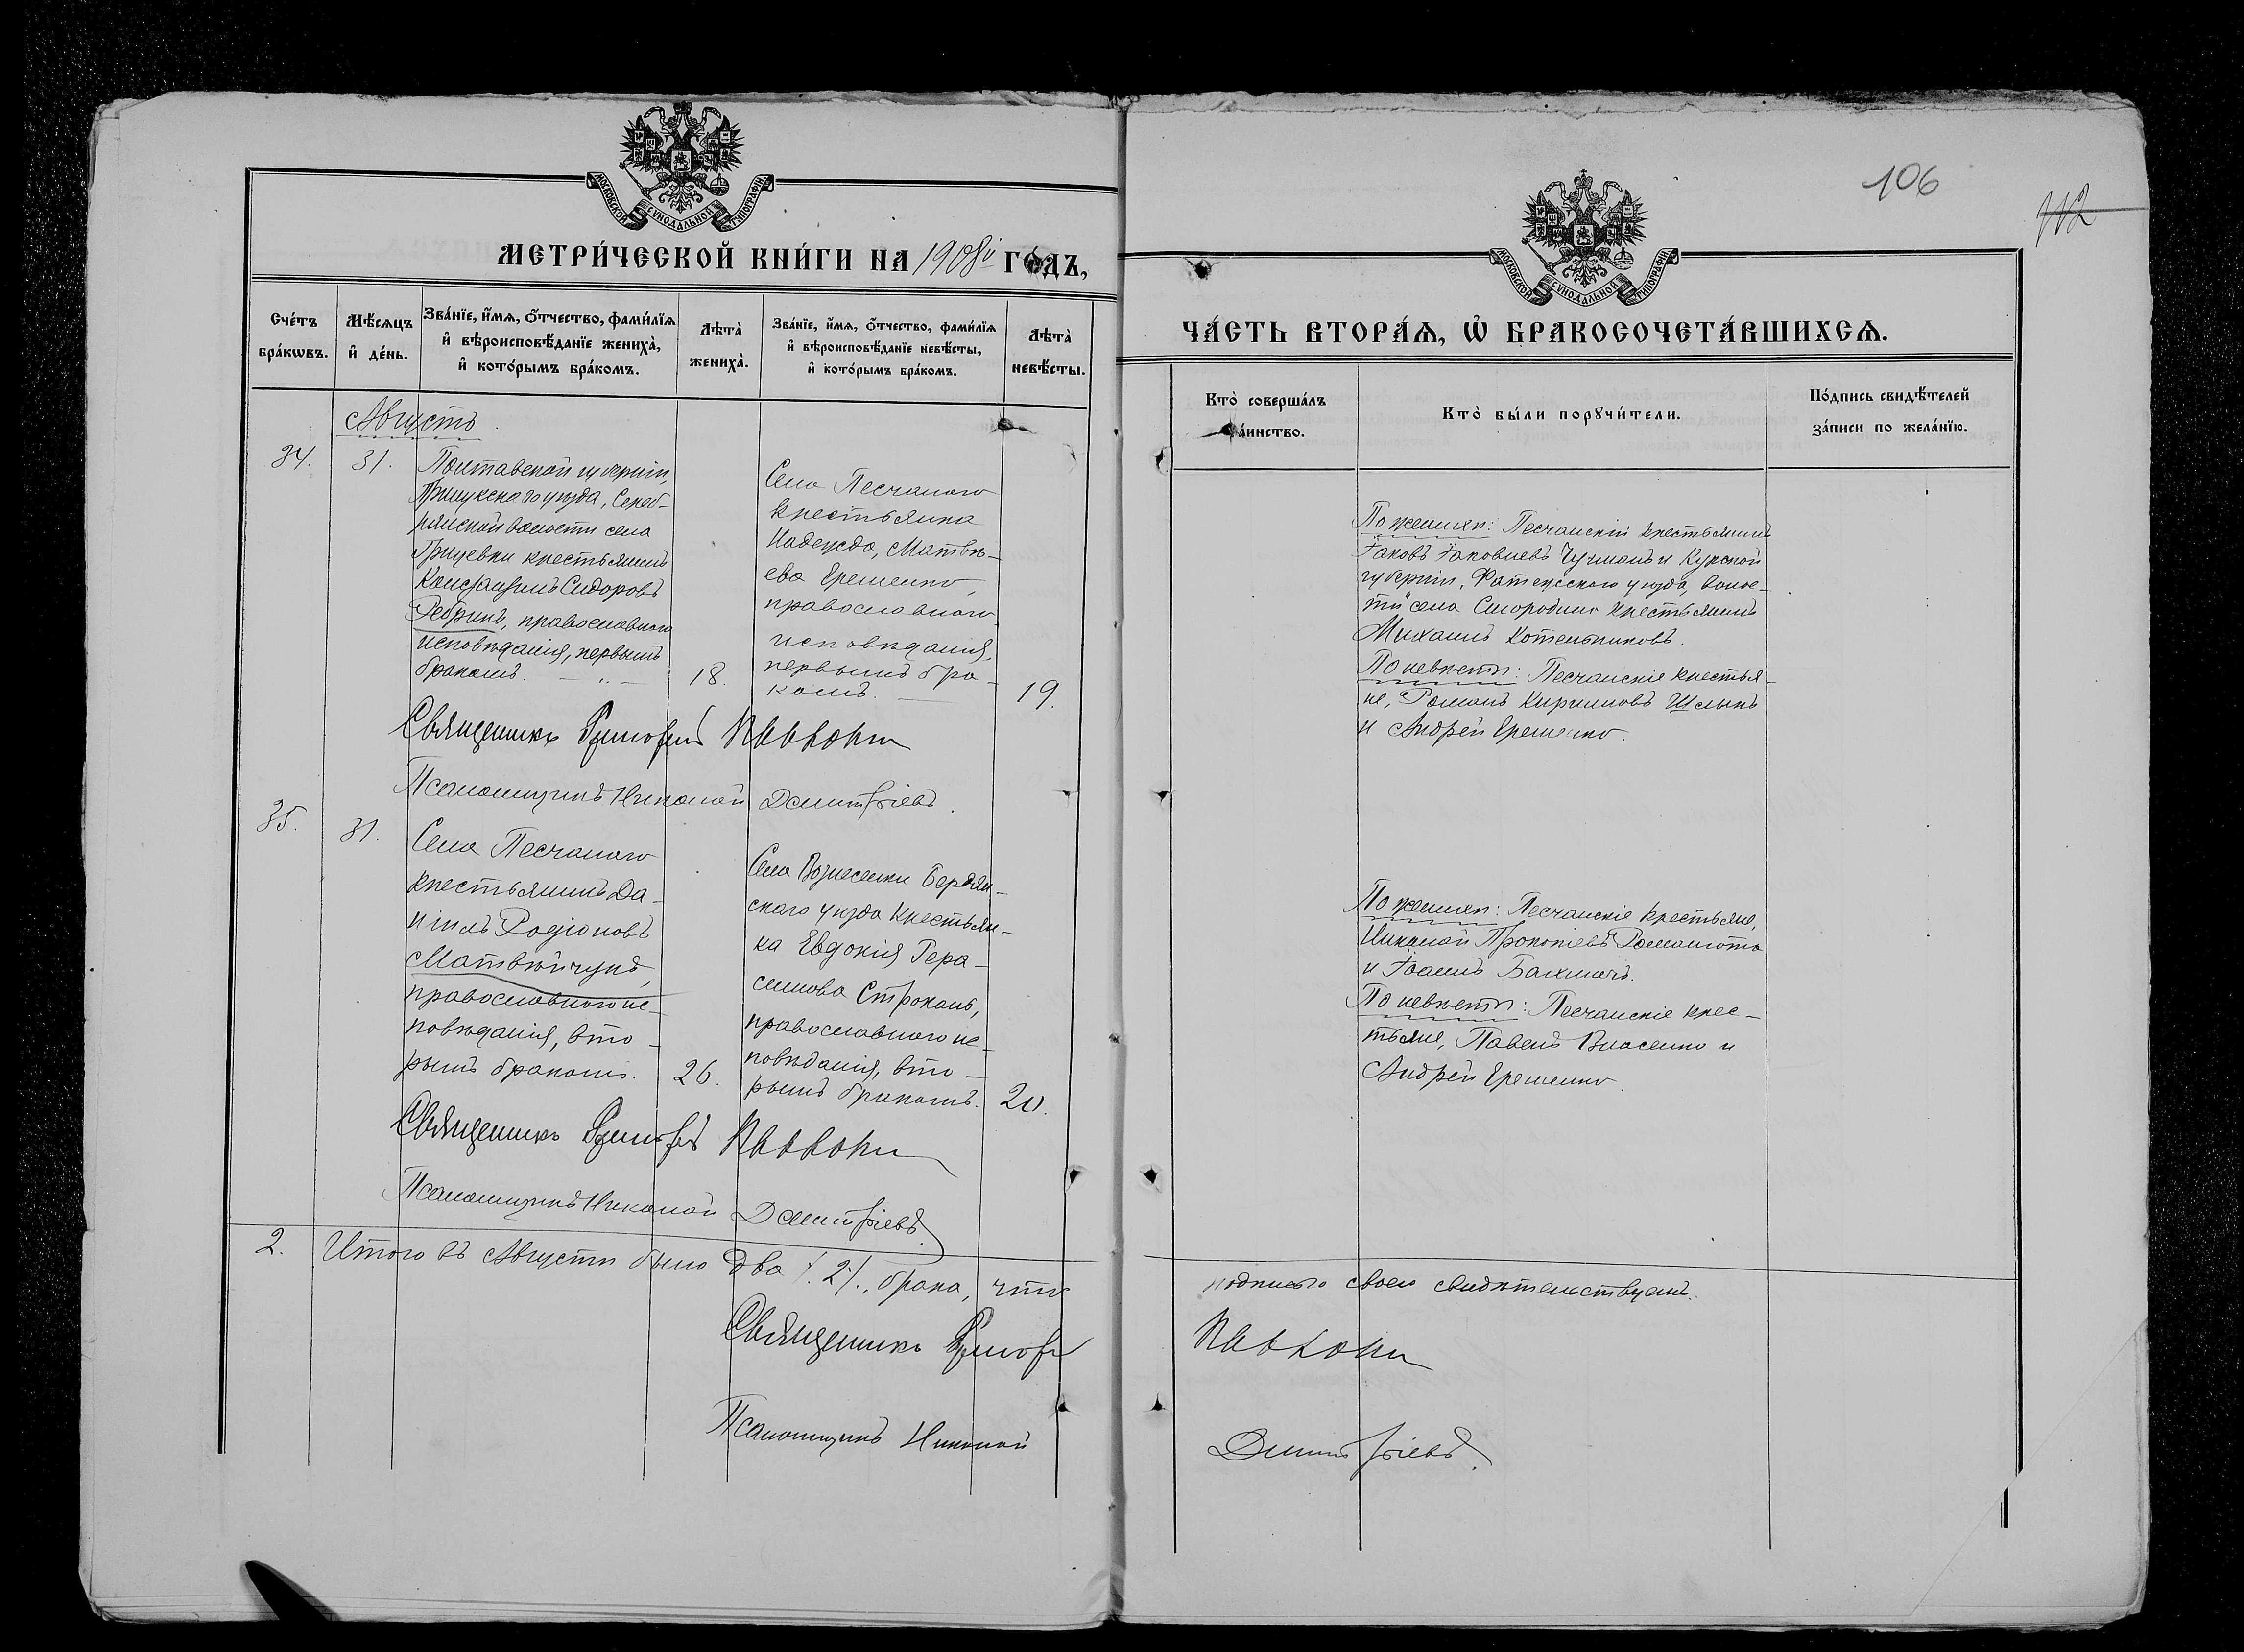 МОСКОВСКОЙ СѴНОДАЛЬНОЙ ТИПОГРАФІИ
МЕТРИ́ЧЕСКОЙ КНИ́ГИ НА 1908й ГО́ДЪ,
Сче́тъ бра́кѡвъ.
Мѣ́сяцъ и҆ де́нь.
Зва́нїе, и҆́мѧ, ѻ҆́тчество, фами́лїѧ и҆ вѣроисповѣ́данїе жениха̀, и҆ кото́рымъ бра́комъ.
Лѣта̀ жениха̀.
Зва́нїе, и҆́мѧ, ѻ҆́тчество, фами́лїѧ и҆ вѣроисповѣ́данїе невѣ́сты, и҆ кото́рымъ бра́комъ.
Лѣта̀ невѣ́сты.
Августъ
34.
31.
Полтавской губерніи,
Прилукскаго уѣзда, Сереб-
рянской волости села
Грицевки крестьянинъ
Константинъ Сидоровъ
Ребрикъ, православнаго
исповѣданія, первымъ
бракомъ.
18.
Села Песчанаго
крестьянка
Надежда, Матвѣ-
ева Ерешенко,
православнаго
исповѣданія,
первымъ бра-
комъ.
19.
Священникъ Тимофей
Псаломщикъ Николай Димитріевъ.
35.
31.
Села Песчанаго
крестьянинъ Да-
ніилъ Родіоновъ
Матвѣйчукъ,
православнаго ис-
повѣданія, вто-
рымъ бракомъ.
26.
Села Вознесенки Бердян-
скаго уѣзда крестьян-
ка Евдокія Гера-
симова Строкань,
православнаго ис-
повѣданія, вто-
рымъ бракомъ.
20.
Священникъ Тимофей
Псаломщикъ Николай Димитріевъ.
2. Итого въ Августѣ было два /.2/. брака, что
Священникъ Тимофей
Псаломщикъ Николай
106
112
МОСКОВСКОЙ СѴНОДАЛЬНОЙ ТИПОГРАФІИ
ЧА́СТЬ ВТОРА́Ѧ, Ѡ҆ БРАКОСОЧЕТА́ВШИХСѦ.
Кто̀ соверша́лъ та́инство.
Кто̀ бы́ли порꙋчи́тели.
По́дпись свидѣ́телей за́писи по жела́нїю.
По женихѣ: Песчанскій крестьянинъ
Іаковъ Іаковлевъ Чучманъ и Курской
губерніи, Фатежскаго уѣзда, волос-
ти села Смородина крестьянинъ
Михаилъ Котельниковъ.
По невѣстѣ: Песчанскіе крестья-
не, Романъ Кирилловъ Шлыкъ
и Андрей Ерешенко.
По женихѣ: Песчанскіе крестьяне,
Николай Прокопіевъ
и Іоаннъ Бахмачъ.
По невѣстѣ: Песчанскіе крес-
тьяне, Павелъ Власенко и
Андрей Ерешенко.
подписью своею свидѣтельствуемъ.
Димитріевъ.